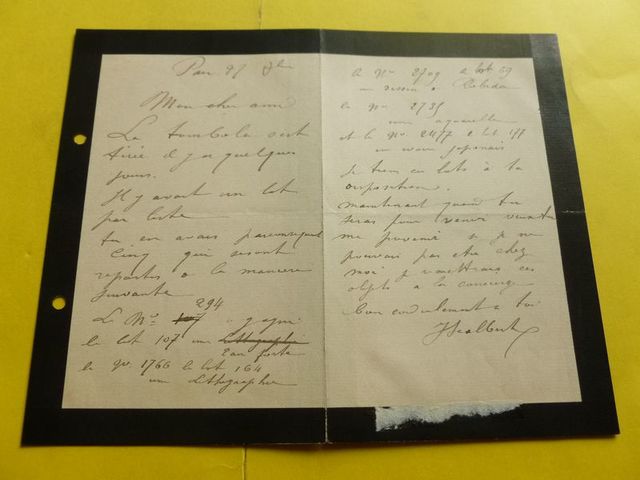 Mon cher ami
La tombola s'est
tirée il y a quelques
jours.
Il y avait un lot
par liste
tu en avais
cinq qui seront
repartis de la maniere
suivante
294
Le No 107 a gagné
le lot 107 une Lithographie
Eau forte
le No 1766 le lot 164
une Lithographie
le No 2709 le lot 59
un dessin de Robida
le No 2735
une aquarelle
et le No 2477 le lot 177
un vase japonais
Je tiens ces lots à ta
disposition.
maintenant quand tu
seras pour venir
me prevenir si je ne
pouvais pas etre chez
moi je remettrais ces
objets a la concierge
bien cordialement à toi